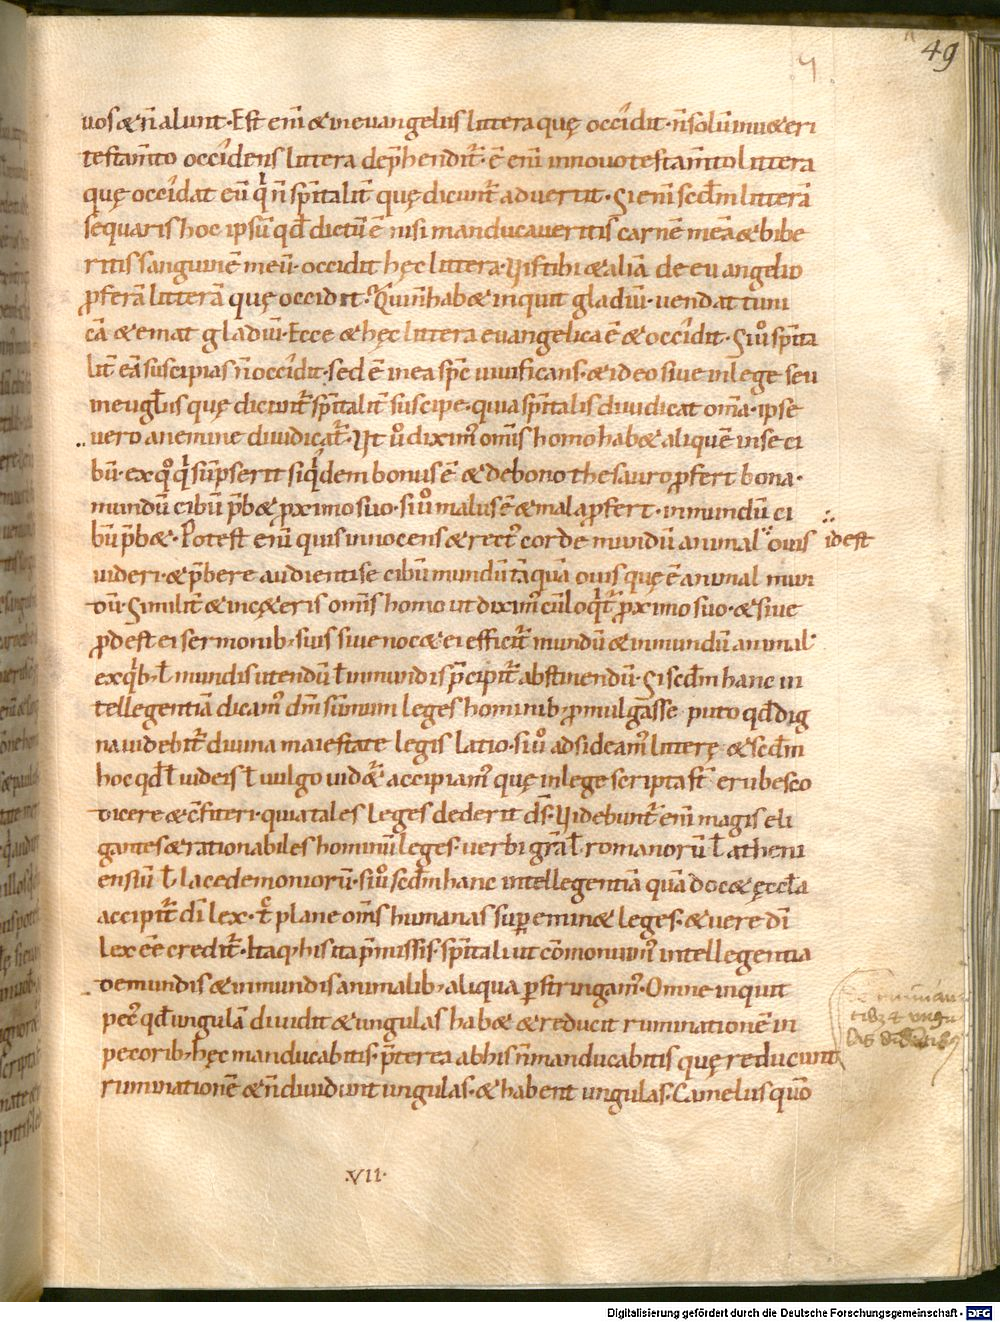 49
uos & n̄ alunt · Est eni̅ & in euangeliis littera quę occidit · n̄ solu̅ in u&eri
testam̅to occidens littera dep̅hendit̅ · ē eni̅ in nouo testam̅to littera
quę occidat eu̅ q̍ n̄ sp̅italit̅ quę dicunt̅ aduertit · Si eni̅ scd̅m littera̅
sequaris hoc ipsu̅ qd̅ dictu̅ ē nisi manducaueritis carne̅ mea̅ & bibe
ritis sanguine̅ meu̅ · occidit hęc littera · Uis tibi & alia̅ de euangelio
ꝓfera̅ littera̅ quę occidit · Qui n̄ hab& inquit gladiu̅ · uendat tuni
ca̅ & emat gladiu̅ · Ecce & hęc littera euangelica ē & occidit · Si uͦ sp̅ita
lit̅ ea̅ suscipias n̄ occidit · sed ē in ea sp̅c uiuificans · & ideo siue in lege seu
in eugl̅iis quę dicunt̅ sp̅italit̅ suscipe · quia sp̅italis diiudicat om̅a · ipse
uero a nemine diiudicat̅ · Ut uͦ dixim᾿ om̅is homo hab& alique̅ in se ci
bu̅ · ex qͦ q̍ su̅pserit siq̍dem bonus ē & de bono thesauro ꝓfert bona ·
mundu̅ cibu̅ p̅b& ꝓximo suo · si uͦ malus ē & mala ꝓfert · inmundu̅ ci
bu̅ p̅b& · Potest eni̅ quis innocens & rect᾿ corde mundu̅ animal ouis
id est
uideri · & p̅bere audienti se cibu̅ mundu̅ ta̅qua̅ ouis quę ē animal mun
du̅ · Similit̅ & in cę&eris om̅is homo ut dixim᾿ cu̅ loq̍t̅ ꝓximo suo · & siue
ꝓdest ei sermonib; suis siue noc& ei efficit̅ mundu̅ & inmundu̅ animal
ex q̍b; l̅ mundis utendu̅ l̅ inmundis p̅cipit̅ abstinendu̅ · Si scd̅m hanc in
tellegentia̅ dicam᾿ dm̅ su̅mum leges hominib; ꝓmulgasse puto qd̅ dig
na uidebit̅ diuina maiestate legis latio · si uͦ adsideam᾿ litterę & scd̅m
hoc qd̅ l̅ iudeis l̅ uulgo uid&̅ accipiam᾿ quę in lege scripta st̅ erubesco
dicere & c̅fiteri · quia tales leges dederit ds̅ · Uidebunt̅ eni̅ magis eli
gantes & rationabiles hominu̅ leges · uerbi gra̅ l̅ romanoru̅ l̅ atheni
ensiu̅ l̅ lacedemonioru̅ · si uͦ scd̅m hanc intellegentia̅ qua̅ doc& ęccl̅a
accipit̅ di̅ lex · t̅ plane om̅s humanas superemin& leges · & uere di̅
lex ēe credit̅ · Itaq; his ita p̅missis · sp̅itali ut co̅monuim᾿ intellegentia
de mundis & inmundis animalib; aliqua ꝑstringam᾿ · Omne inquit
pec᾿ qd̅ ungula̅ diuidit & ungulas hab& & reducit ruminatione̅ in
pecorib; hęc manducabitis · p̅terea ab his n̄ manducabitis quę reducunt
ruminatione̅ & n̄ diuidunt ungulas · & habent ungulas · Camelus quo̅
· VII ·